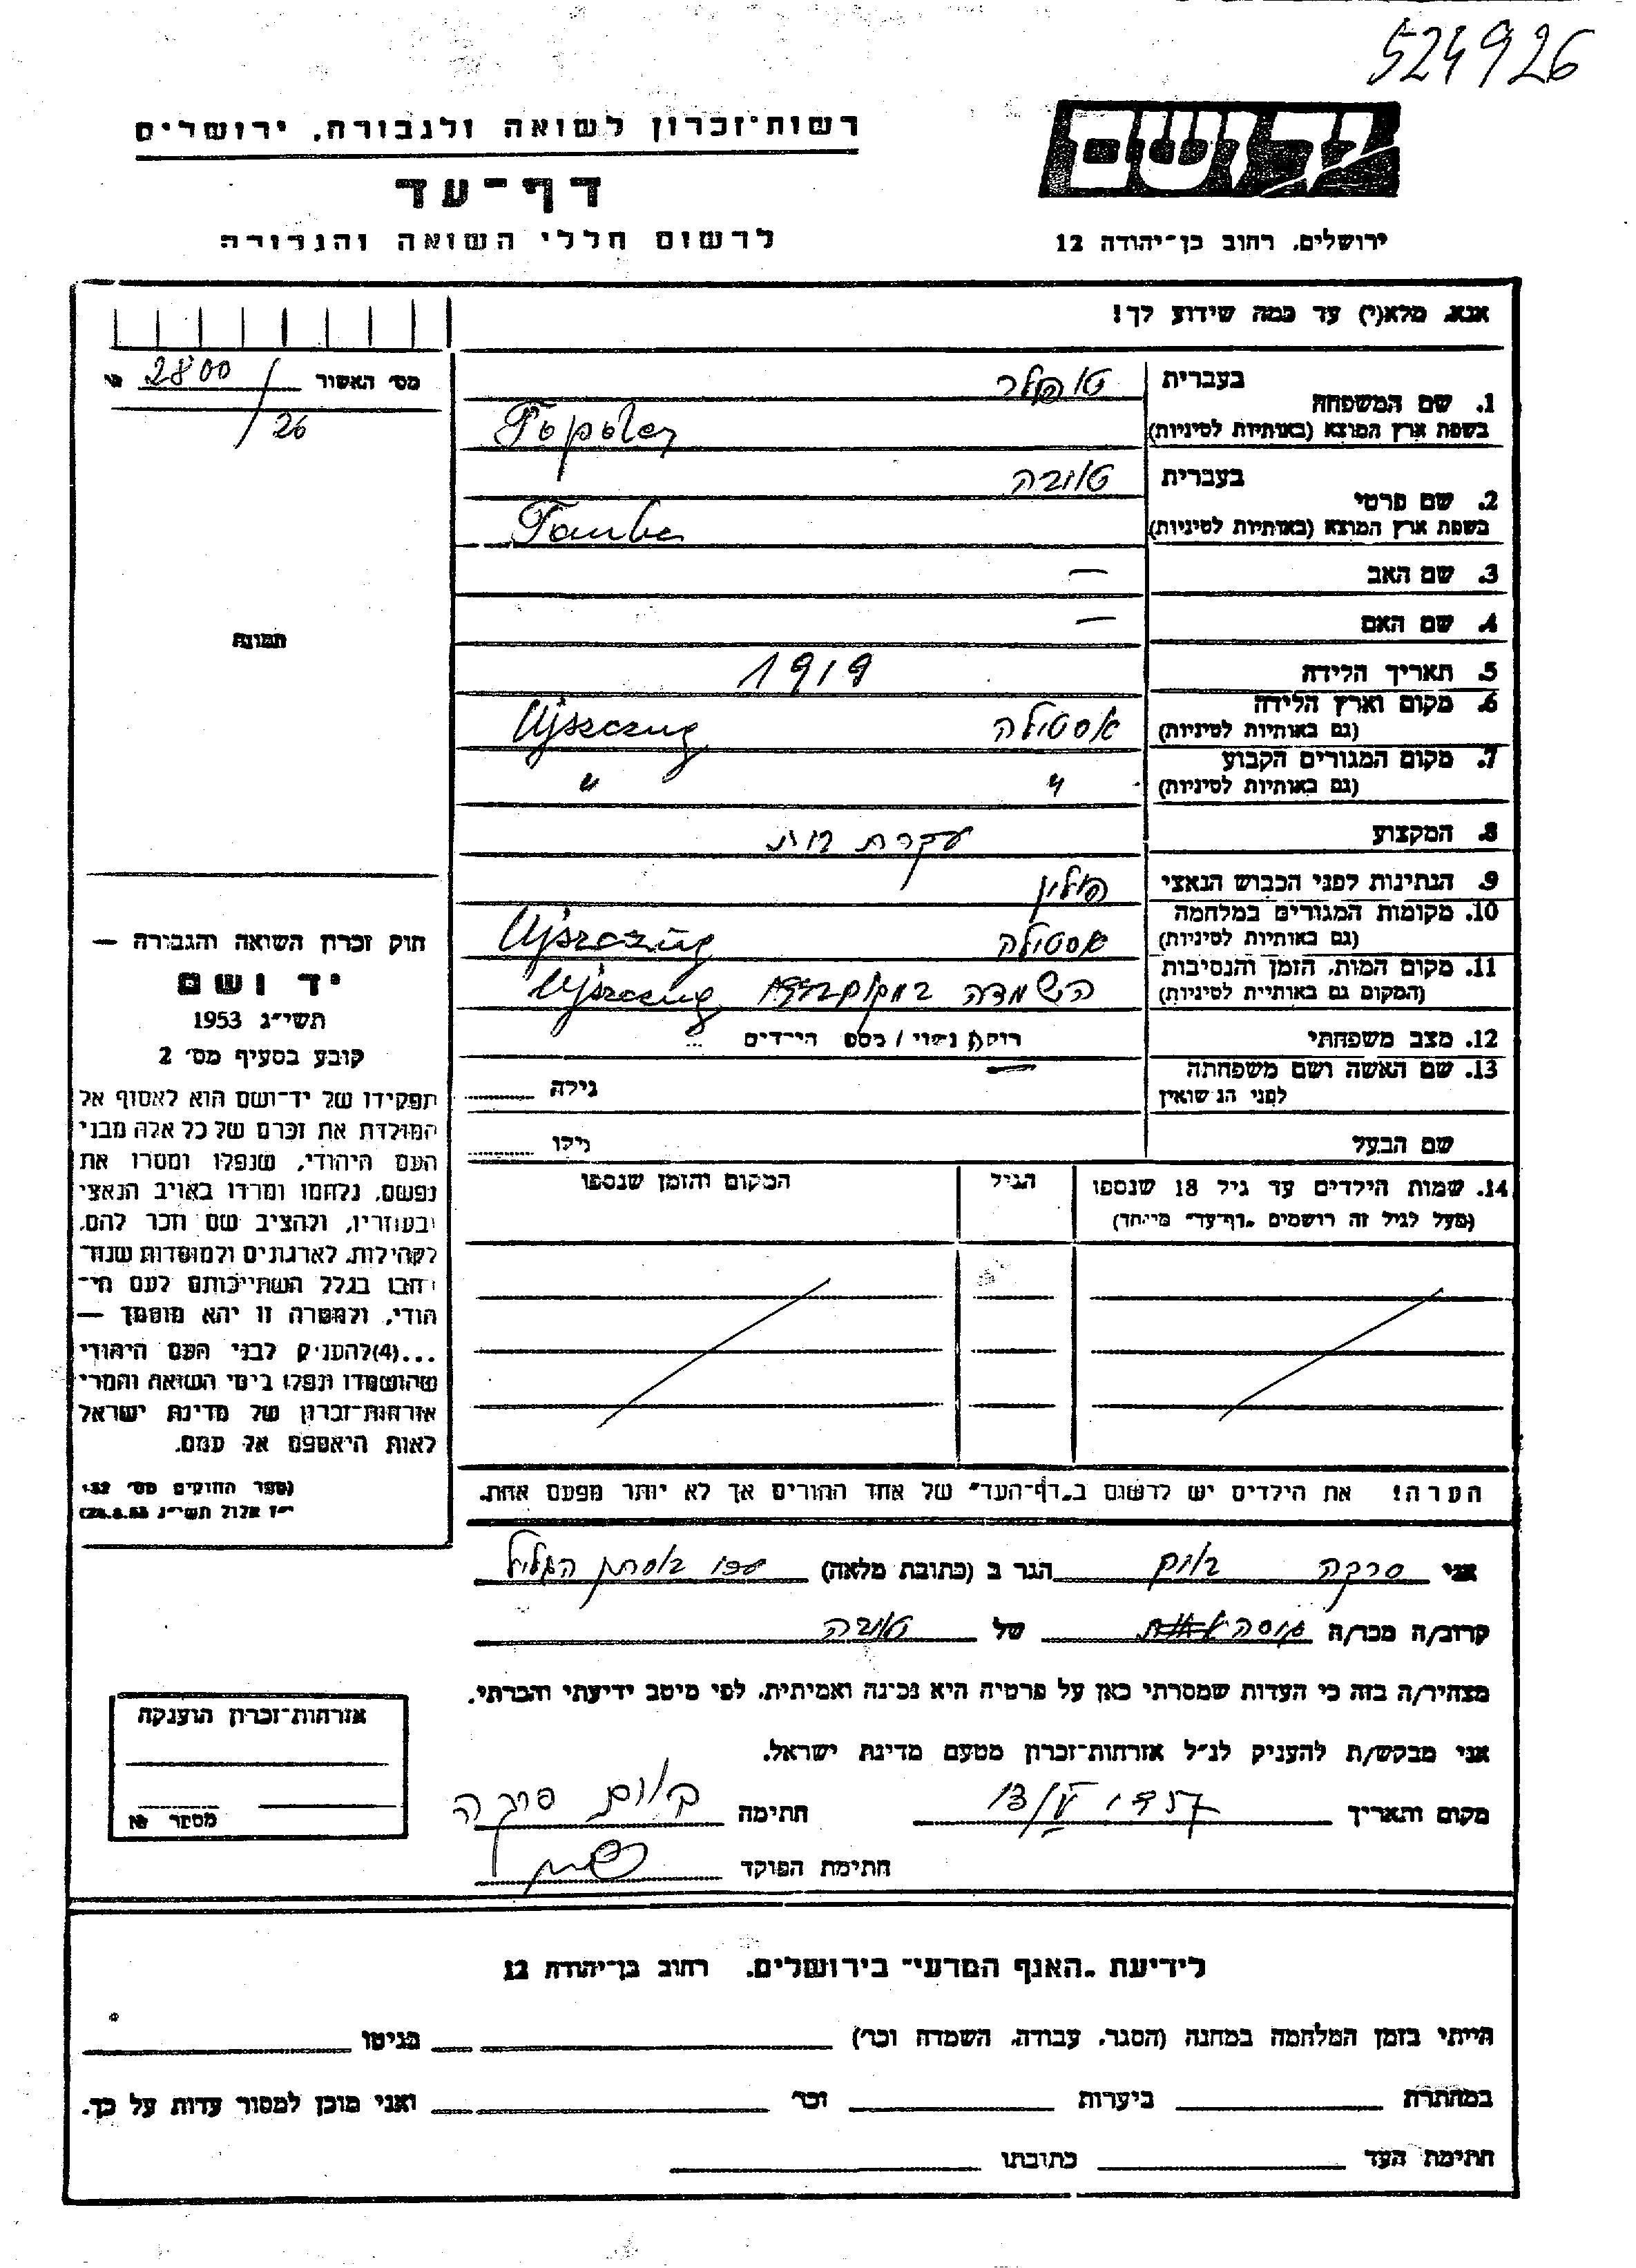 524926
יד ושם
רשות־זכרון לשואה ולגבורה, ירושלים
דף־עד
לרשום חללי השואה והגבורה
ירושלים, רחוב בן־יהודה 12
אנא, מלא(י) עד כמה שידוע לך!
מס׳ האשור 2800/26
1. שם המשפחה
בעברית טופולר
בשפת ארץ המוצא (באותיות לטיניות) Topoler
2. שם פרטי
בעברית טויבה
בשפת ארץ המוצא (באותיות לטיניות) Tauba
3. שם האב —
4. שם האם —
5. תאריך הלידה 1919
6. מקום וארץ הלידה
(גם באותיות לטיניות) אסטילה Ujśzczug
7. מקום המגורים הקבוע
(גם באותיות לטיניות) " "
8. המקצוע עקרת בית
9. הנתינות לפני הכבוש הנאצי פולין
10. מקומות המגורים במלחמה
(גם באותיות לטיניות) אסטילה Ujśzczug
11. מקום המות, הזמן והנסיבות
(המקום גם באותיות לטיניות) השמדה במקום Ujśzczug
12. מצב משפחתי רווק/ה נשוי/ מספר הילדים ...
13. שם האשה ושם משפחתה
לפני הנישואין — גילה
שם הבעל גילו
14. שמות הילדים עד גיל 18 שנספו
(מעל לגיל זה רושמים "דף־עד" מיוחד)
הגיל
המקום והזמן שנספו
הערה! את הילדים יש לרשום ב"דף־העד" של אחד ההורים אך לא יותר מפעם אחת.
תמונה
חוק זכרון השואה והגבורה —
יד ושם
תשי״ג 1953
קובע בסעיף מס׳ 2
תפקידו של יד־ושם הוא לאסוף אל
המולדת את זכרם של כל אלה מבני
העם היהודי, שנפלו ומסרו את
נפשם, נלחמו ומרדו באויב הנאצי
ובעוזריו, ולהציב שם וזכר להם,
לקהילות, לארגונים ולמוסדות שנח־
רבו בגלל השתייכותם לעם הי־
הודי, ולמטרה זו יהא מוסמך —
...(4)להעניק לבני העם היהודי
שהושמדו ונפלו בימי השואה והמרי
אזרחות־זכרון של מדינת ישראל
לאות היאספם אל עמם.
(ספר החוקים מס׳ 132
י״ז אלול תשי״ג 28.8.53)
אני סרקה בוים הגר ב (כתובת מלאה)
קרוב/ה מכר/ה גיסה של טויבה
מצהיר/ה בזה כי העדות שמסרתי כאן על פרטיה היא נכונה ואמיתית, לפי מיטב ידיעתי והכרתי.
אני מבקש/ת להעניק לנ״ל אזרחות־זכרון מטעם מדינת ישראל.
מקום ותאריך 13/V חתימה בוים סרקה
חתימת הפוקד
אזרחות־זכרון הוענקה
מספר №
לידיעת "האגף המדעי" בירושלים, רחוב בן־יהודה 12
הייתי בזמן המלחמה במחנה (הסגר, עבודה, השמדה וכו׳) בגיטו
במחתרת ביערות וכו׳ ואני מוכן למסור עדות על כך.
חתימת העד כתובתו